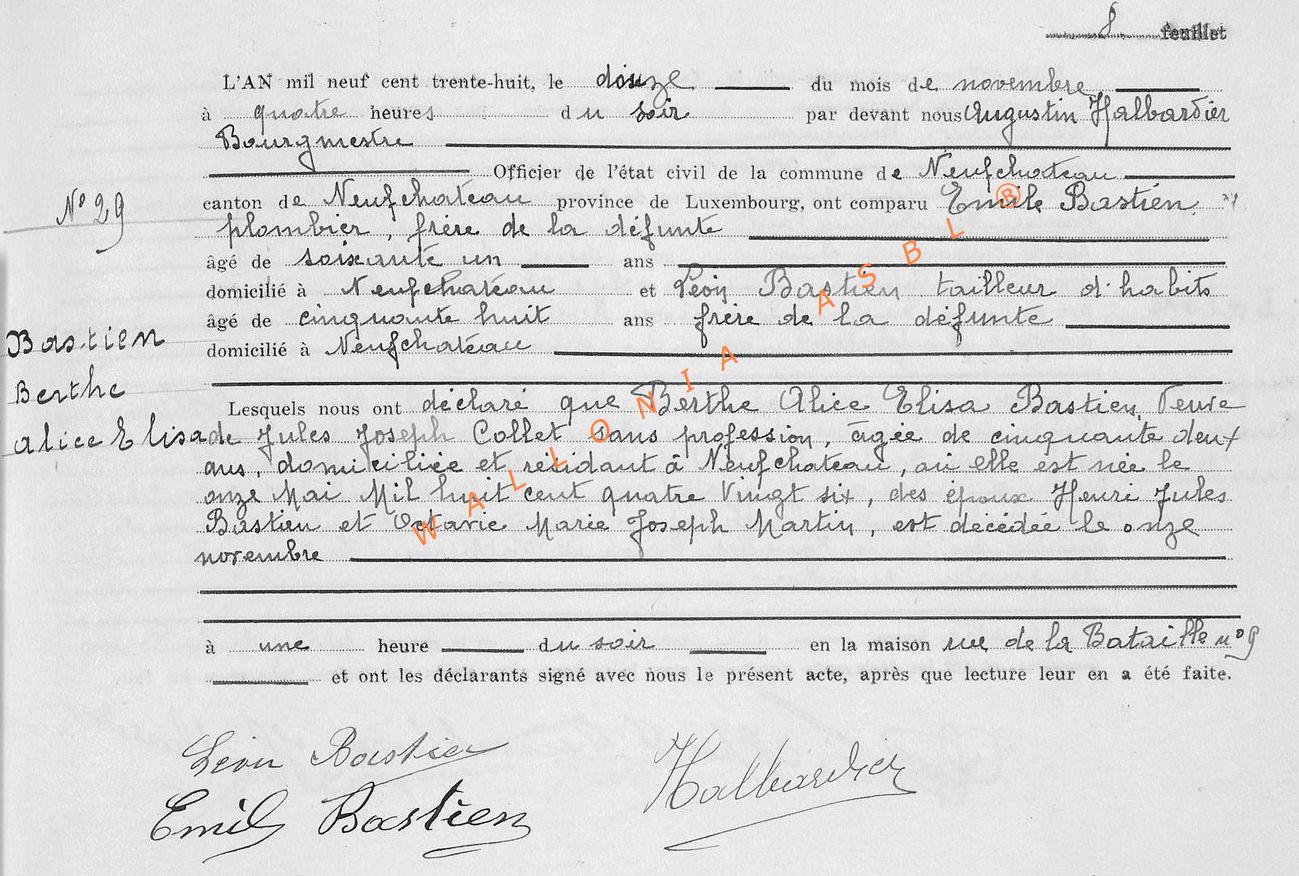 8 feuillet
L'AN mil neuf cent trente-huit, le douze du mois de novembre
à quatre heures du soir par devant nous Augustin Halbardier
Bourgmestre
Officier de l'état civil de la commune de Neufchateau
N° 29
canton de Neufchateau province de Luxembourg, ont comparu Emile Bastien
plombier, frère de la défunte
âgé de soixante un ans
domicilié à Neufchateau et Léon Bastien tailleur d'habits
âgé de cinquante huit ans frère de la défunte
Bastien
domicilié à Neufchateau
Berthe
Lesquels nous ont déclaré que Berthe Alice Elisa Bastien, Veuve
Alice Elisa
de Jules Joseph Collet sans profession, âgée de cinquante deux
ans, domiciliée et résidant à Neufchateau, où elle est née le
onze Mai Mil huit cent quatre Vingt six, des époux Henri Jules
Bastien et Octavie Marie Joseph Martin, est décédée le onze
novembre
à une heure du soir en la maison rue de la Bataille n° 9
et ont les déclarants signé avec nous le présent acte, après que lecture leur en a été faite.
Léon Bastien
Halbardier
Emile Bastien
WALLONIA ASBL ®